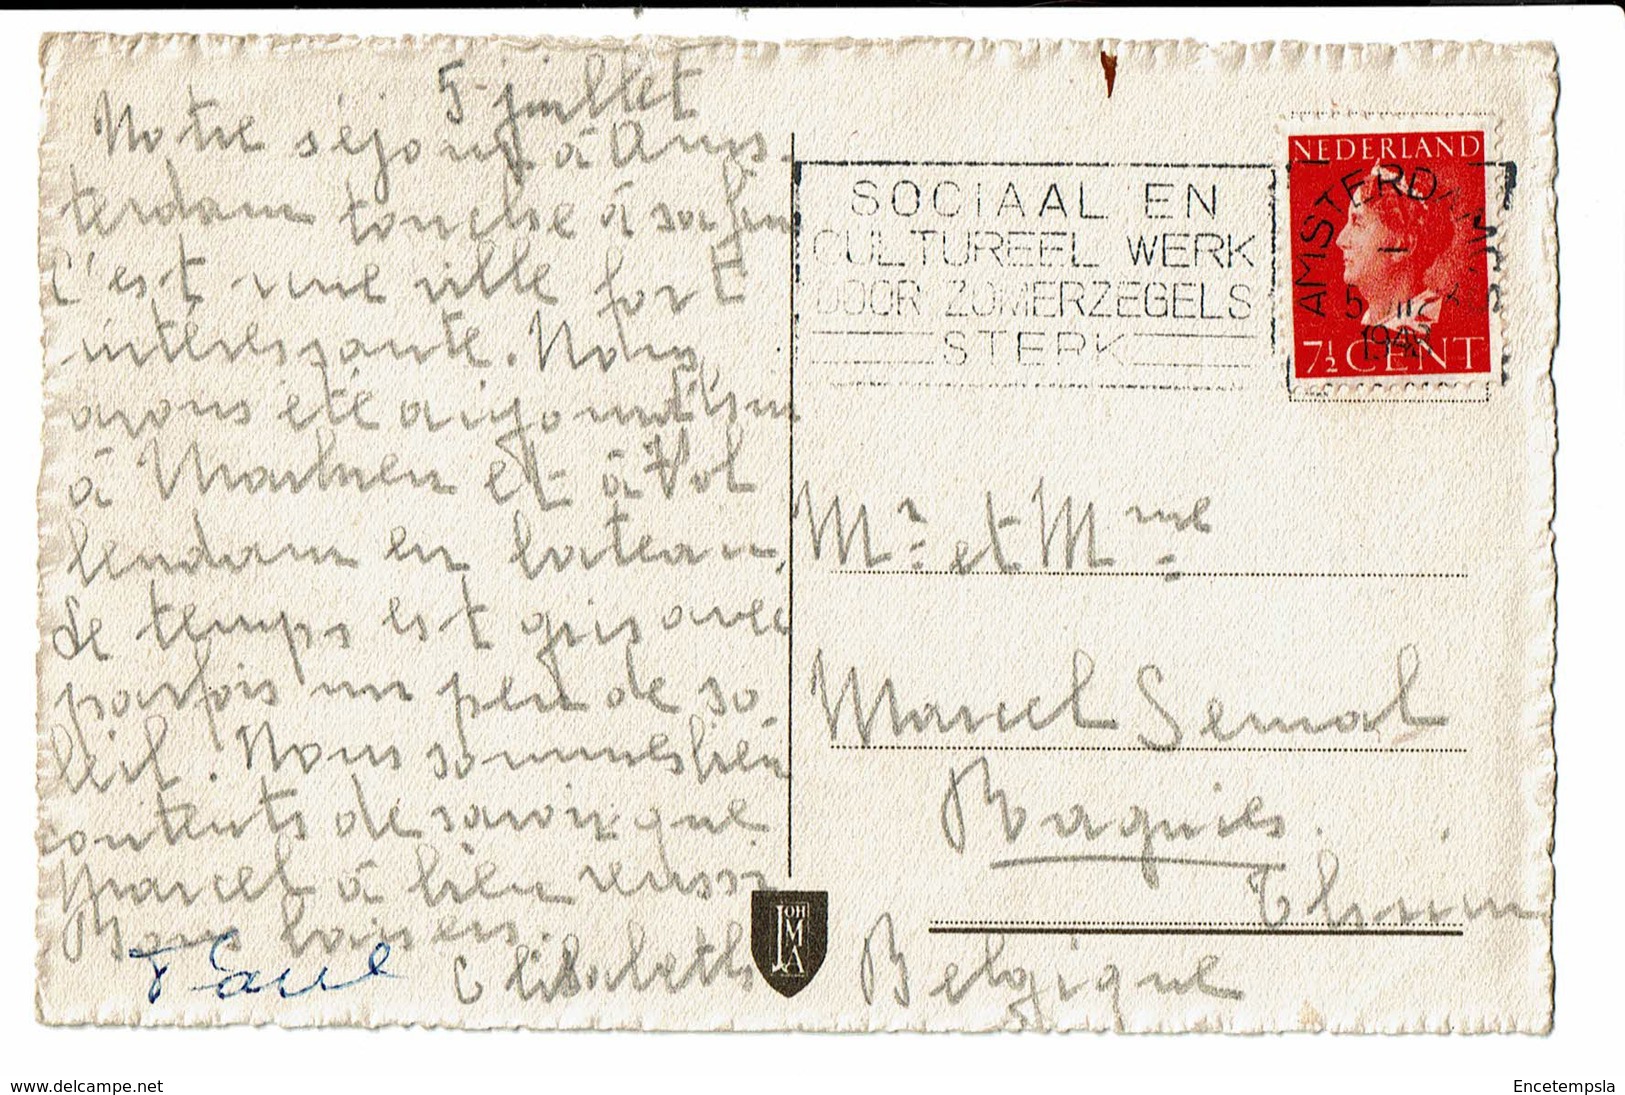 5 juillet
Notre séjour à Ams-
terdam touche à sa fin
C'est une ville fort
intéressante. Nous
avons été aujourd'hui
à Marken et à Vol
lendam en bateau.
Le temps est gris avec
parfois un peu de so-
leil. Nous sommes bien
contents de savoir que
Marcel à bien reussi
Bons baisers.
Elisabeth
NEDERLAND
7½ CENT
AMSTERDAM
1
5 VII
1948
SOCIAAL EN
CULTUREEL WERK
DOOR ZOMERZEGELS
STERK
Mr. et Mme
Marcel Semal
Ragnies.
Thuin
Belgique
JOH
M
A
www.delcampe.net
Encetempsla